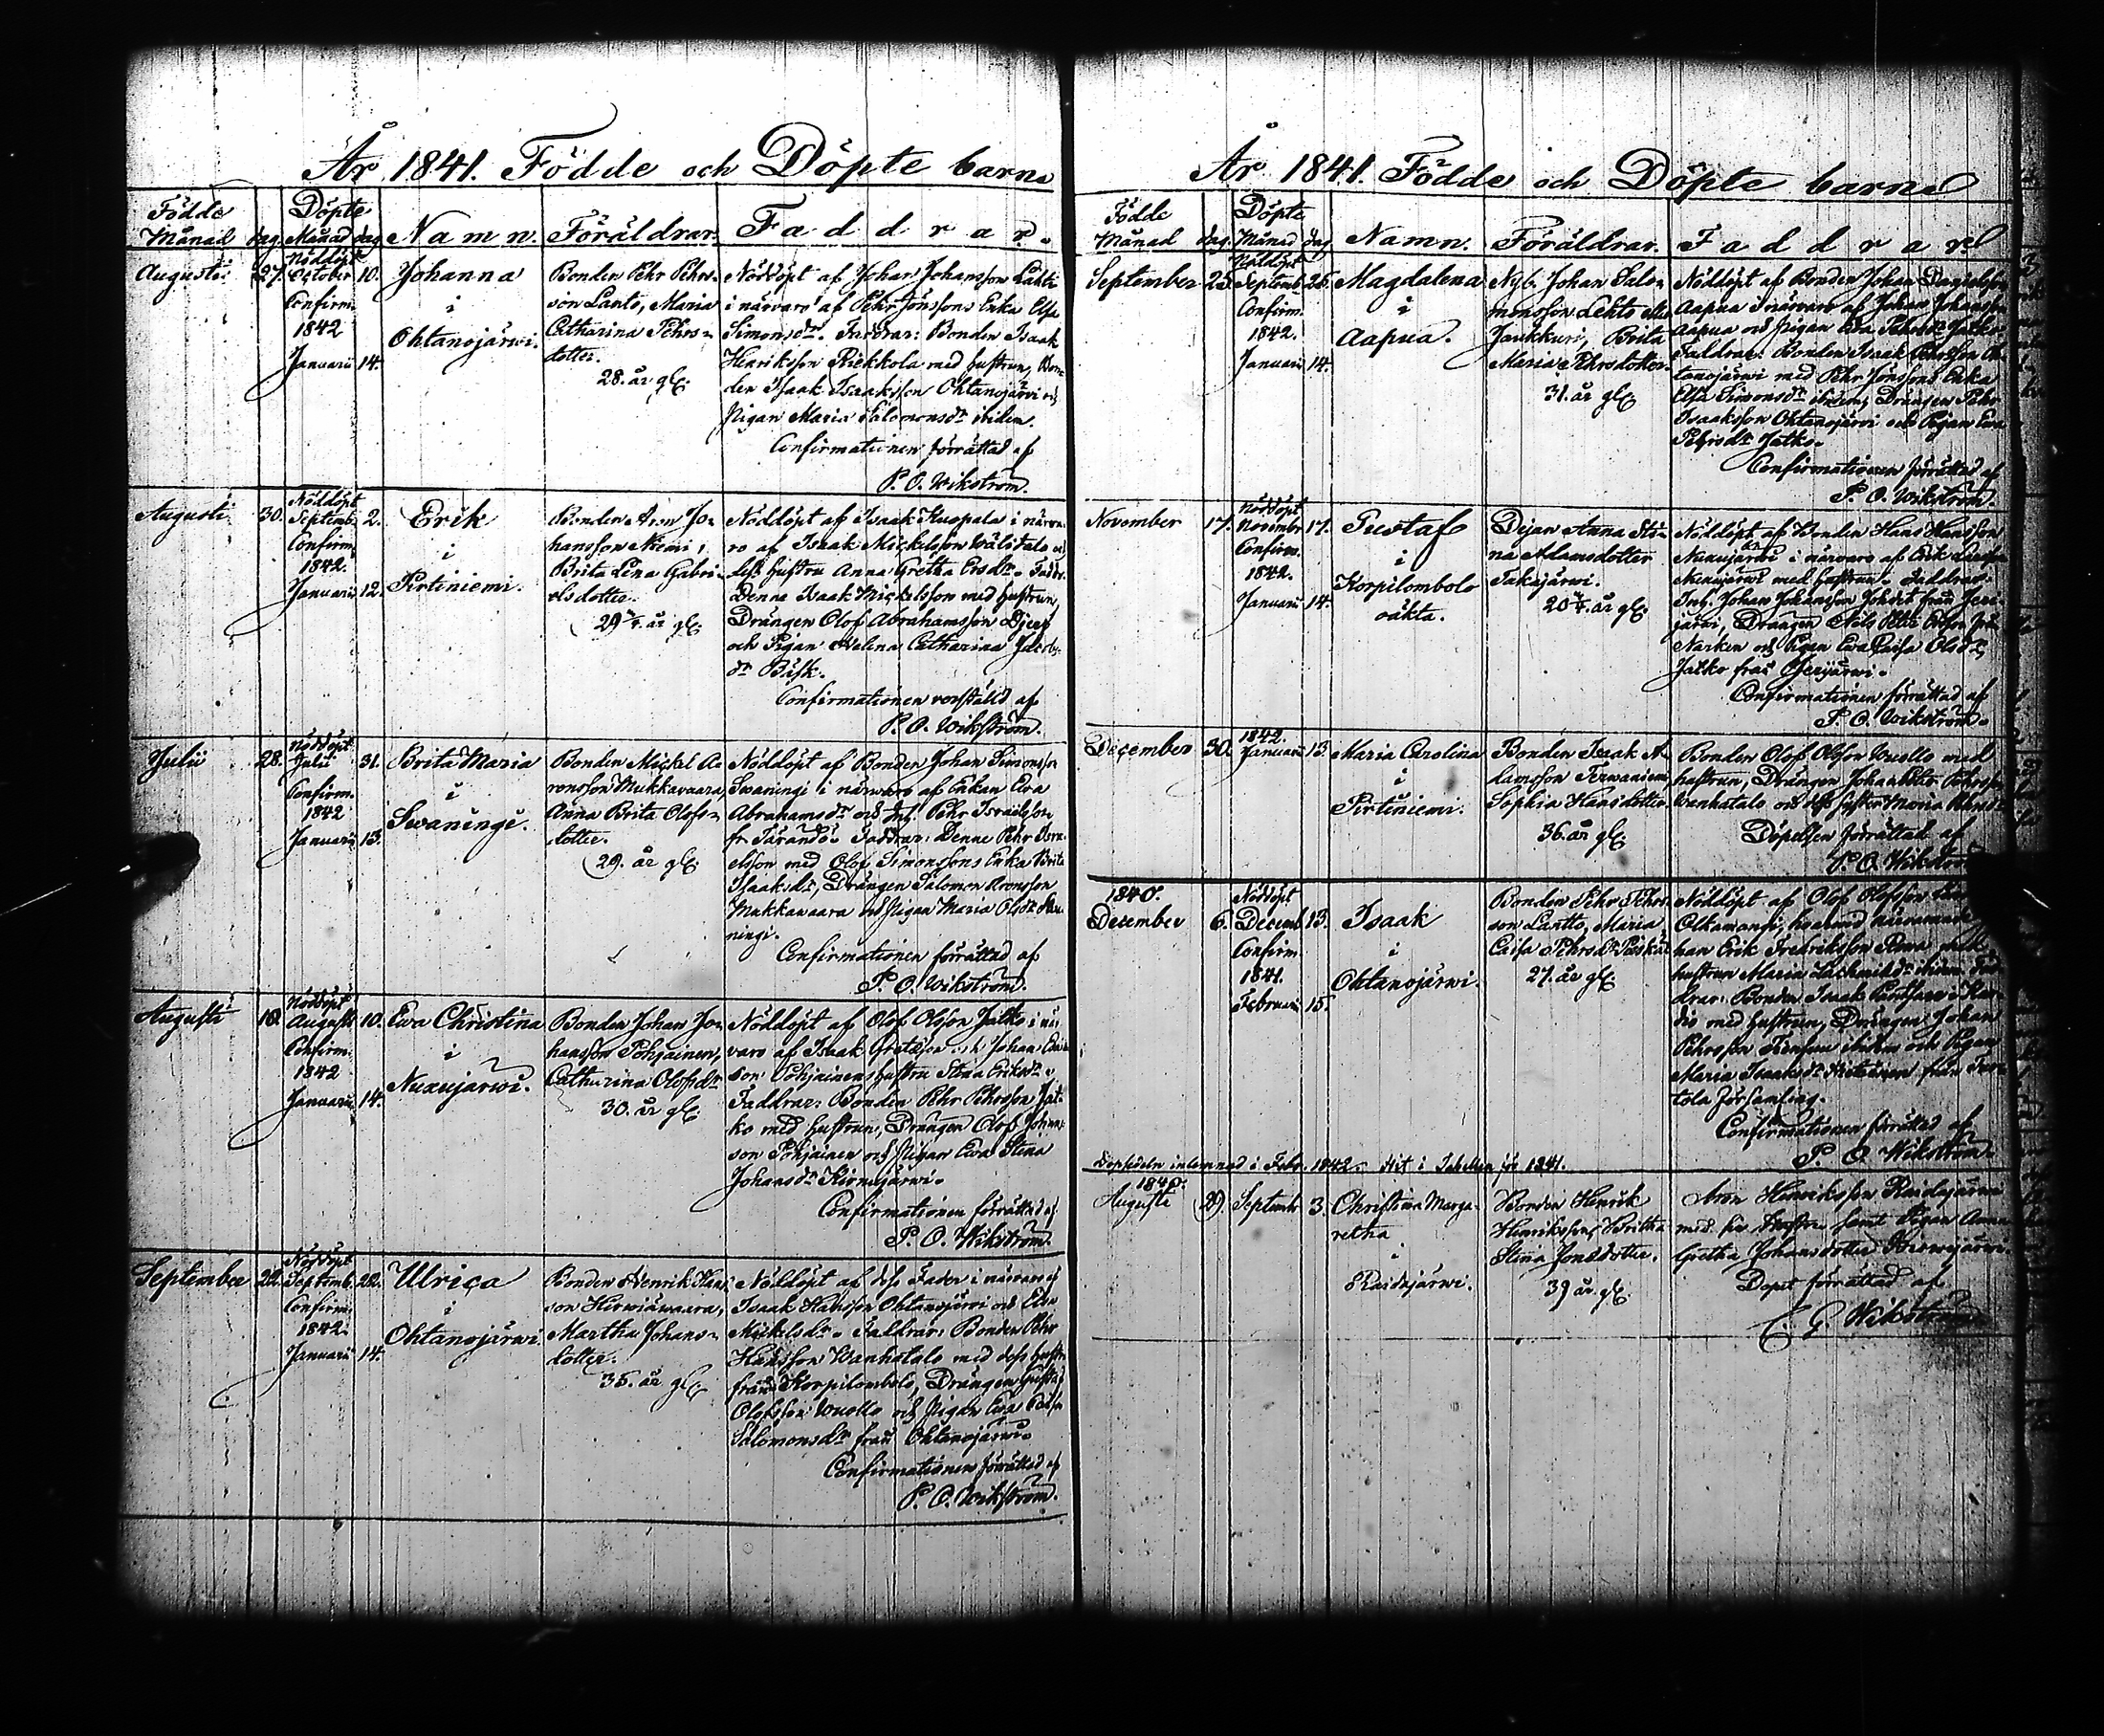 År 1841. Födde och Döpte barn
Födde Månad dag Döpte Månad dag Namn. Föräldrar. Faddrar.
Augusti 27. Nöddöpt October 10. Confirm. 1842 Januarii 14.
Johanna
i
Ohtanajärwi.
Bonden Pehr Pehrs-
son Lanto, Maria
Catharina Pehrs-
dotter.
28. år gl.
Nöddöpt af Johan Johansson Lahti
i närvaro af Pehr Jönssons Enka Elsa
Simonsdr. Faddrar: Bonden Isaak
Henriksson Riekkola med hustrun, Bon-
den Isaak Isaaksson Ohtanajärwi och
Pigan Maria Salomonsdr ibidem.
Confirmationen förrättad af
P. O. Wikström.
Augusti 30. Nöddöpt Septemb. 2. Confirm. 1842. Januarii 12.
Erik
i
Pirtiniemi.
Bonden Aron Jo-
hansson Niemi,
Brita Lena Gabri-
elsdotter.
29 år gl.
Nöddöpt af Isaak Kuopala i närva-
ro af Isaak Mickelsson
hustru Anna Gretha Ersdr.
Denne Isaak Mickelsson med hustrun,
Drängen Olof Abrahamsson
och Pigan Helena Catharina Jakobs-
dr Bäsk.
Confirmationen verställd af
P. O. Wikström.
Julii 28. Nöddöpt Julii 31. Confirm. 1842 Januarii 13.
Brita Maria
i
Swaningi.
Bonden Mickel Aa-
ronsson Mukkavaara,
Anna Brita Olofs-
dotter.
29. år gl.
Nöddöpt af Bonden Johan Simonsson
Swaningi i närwaro af Enkan Ewa
Abrahamsdr och Inh. Pehr Israelsson
fr. Tärändö. Faddrar: Denne Pehr Isra-
elsson med Olof Simonssons Enka Brita
Isaaksdr, Drängen Salomon Aronsson
Mukkavaara och Pigan Maria Olsdr Swa-
ningi.
Confirmationen förrättad af
P. O. Wikström.
Augusti 10. Nöddöpt Augusti 10. Confirm. 1842 Januarii 14.
Ewa Christina
i
Nuuujärwi.
Bonden Johan Jo-
hansson Pohjainen,
Catharina Olofsdr
30. år gl.
Nöddöpt af Olof Olsson Jatko i när-
varo af Isaak och Johan
son Pohjainens hustru Stina Eriksdr.
Faddrar: Bonden Pehr Pehrsson Jat-
ko med hustrun, Drängen Olof Johans-
son Pohjainen och Pigan Ewa Stina
Johansdr Kirnujärwi.
Confirmationen förrättad af
P. O. Wikström.
September 22. Nöddöpt Septemb. 22. Confirm. 1842. Januarii 14.
Ulrica
i
Ohtanajärwi.
Bonden Henrik Hans-
son Hirwiäwaara,
Martha Johans-
dotter.
35. år gl.
Nöddöpt af dess Fader i närvaro af
Isaak Hansson Ohtanajärwi och Elsa
Mickelsdr. Faddrar: Bonden Pehr
Hansson Wanhatalo med dess hustru
från Korpilombolo, Drängen Gustaf
Olofsson Vuollo och Pigan Ewa
Salomonsdr från Ohtanajärwi.
Confirmationen förrättad af
P. O. Wikström.
År 1841. Födde och Döpte barn
Födde Månad dag. Döpte Månad dag Namn. Föräldrar. Faddrar
September 25. Nöddöpt Septemb. 26. Confirm. 1842. Januarii 14.
Magdalena
i
Aapua.
Nyb. Johan Salo-
monsson Lehto
Jaukkuri, Brita
Maria Pehrsdotter.
31. år gl.
Nöddöpt af Bonden Johan Danielsson
Aapua i närvaro af Johan Johansson
Aapua och Pigan Ewa Pehrsdr Jatko.
Faddrar: Bonden Isaak Pehrsson Oh-
tanajärwi med Pehr Jönssons Enka
Elsa Simonsdr ibidem, Drängen Pehr
Isaaksson Ohtanajärwi och Pigan Ewa
Pehrsdr Jatko.
Confirmationen förrättad af
P. O. Wikström.
November 17. Nöddöpt November 17. Confirm. 1842. Januarii 14.
Gustaf
i
Korpilombolo
oäkta.
Dejan Anna Sti-
na Adamsdotter
Takajärwi.
20 år gl.
Nöddöpt af Bonden Hans Hansson
Nuuujärwi i närvaro af Erik
Nuuujärwi med hustrun. Faddrar:
Inh. Johan Johansson från
järwi, Drängen Nils Petter Ersson från
Narken och Pigan Ewa Caisa Olsdr
Jatko från
Confirmationen förrättad af
P. O. Wikström.
December 30. 1842. Januarii 13.
Maria Carolina
i
Pirtiniemi.
Bonden Isaak A-
damsson Terwaniemi,
Sophia Hansdotter
36. år gl.
Bonden Olof Olsson Vuollo med
hustrun, Drängen Johan Petter
Wanhatalo och dess syster Maria
Döpelsen förrättad af
P. O. Wikström
1840.
December 6. Nöddöpt Decemb. 13. Confirm. 1841. Februarii 15.
Isaak
i
Ohtanajärwi.
Bonden Pehr Pehrs-
son Lantto, Maria
Caisa Pehrsdr
27. år gl.
Nöddöpt af Olof Olofsson
närvarande
Erik Fredriksson med
hustrun Maria ibidem. Fad-
drar: Bonden Isaak
med hustrun, Drängen Johan
Pehrsson ibidem och Pigan
Maria Isaaksdr från Tur-
tola församling.
Confirmationen förrättad af
P. O. Wikström
Dopsedeln inlemnad i Febr. 1842.
1840.
Augusti 29. Septembr 3.
Christina Marga-
retha
i
Raidajärwi.
Bonden Henrik
Henriksson, Britha
Stina Jonsdotter.
39 år gl.
Aron Henriksson Raidajärwi
med sin Hustru samt Pigan Anna
Gretha Johansdotter
Dopet förrättad af
C. G. Wikström